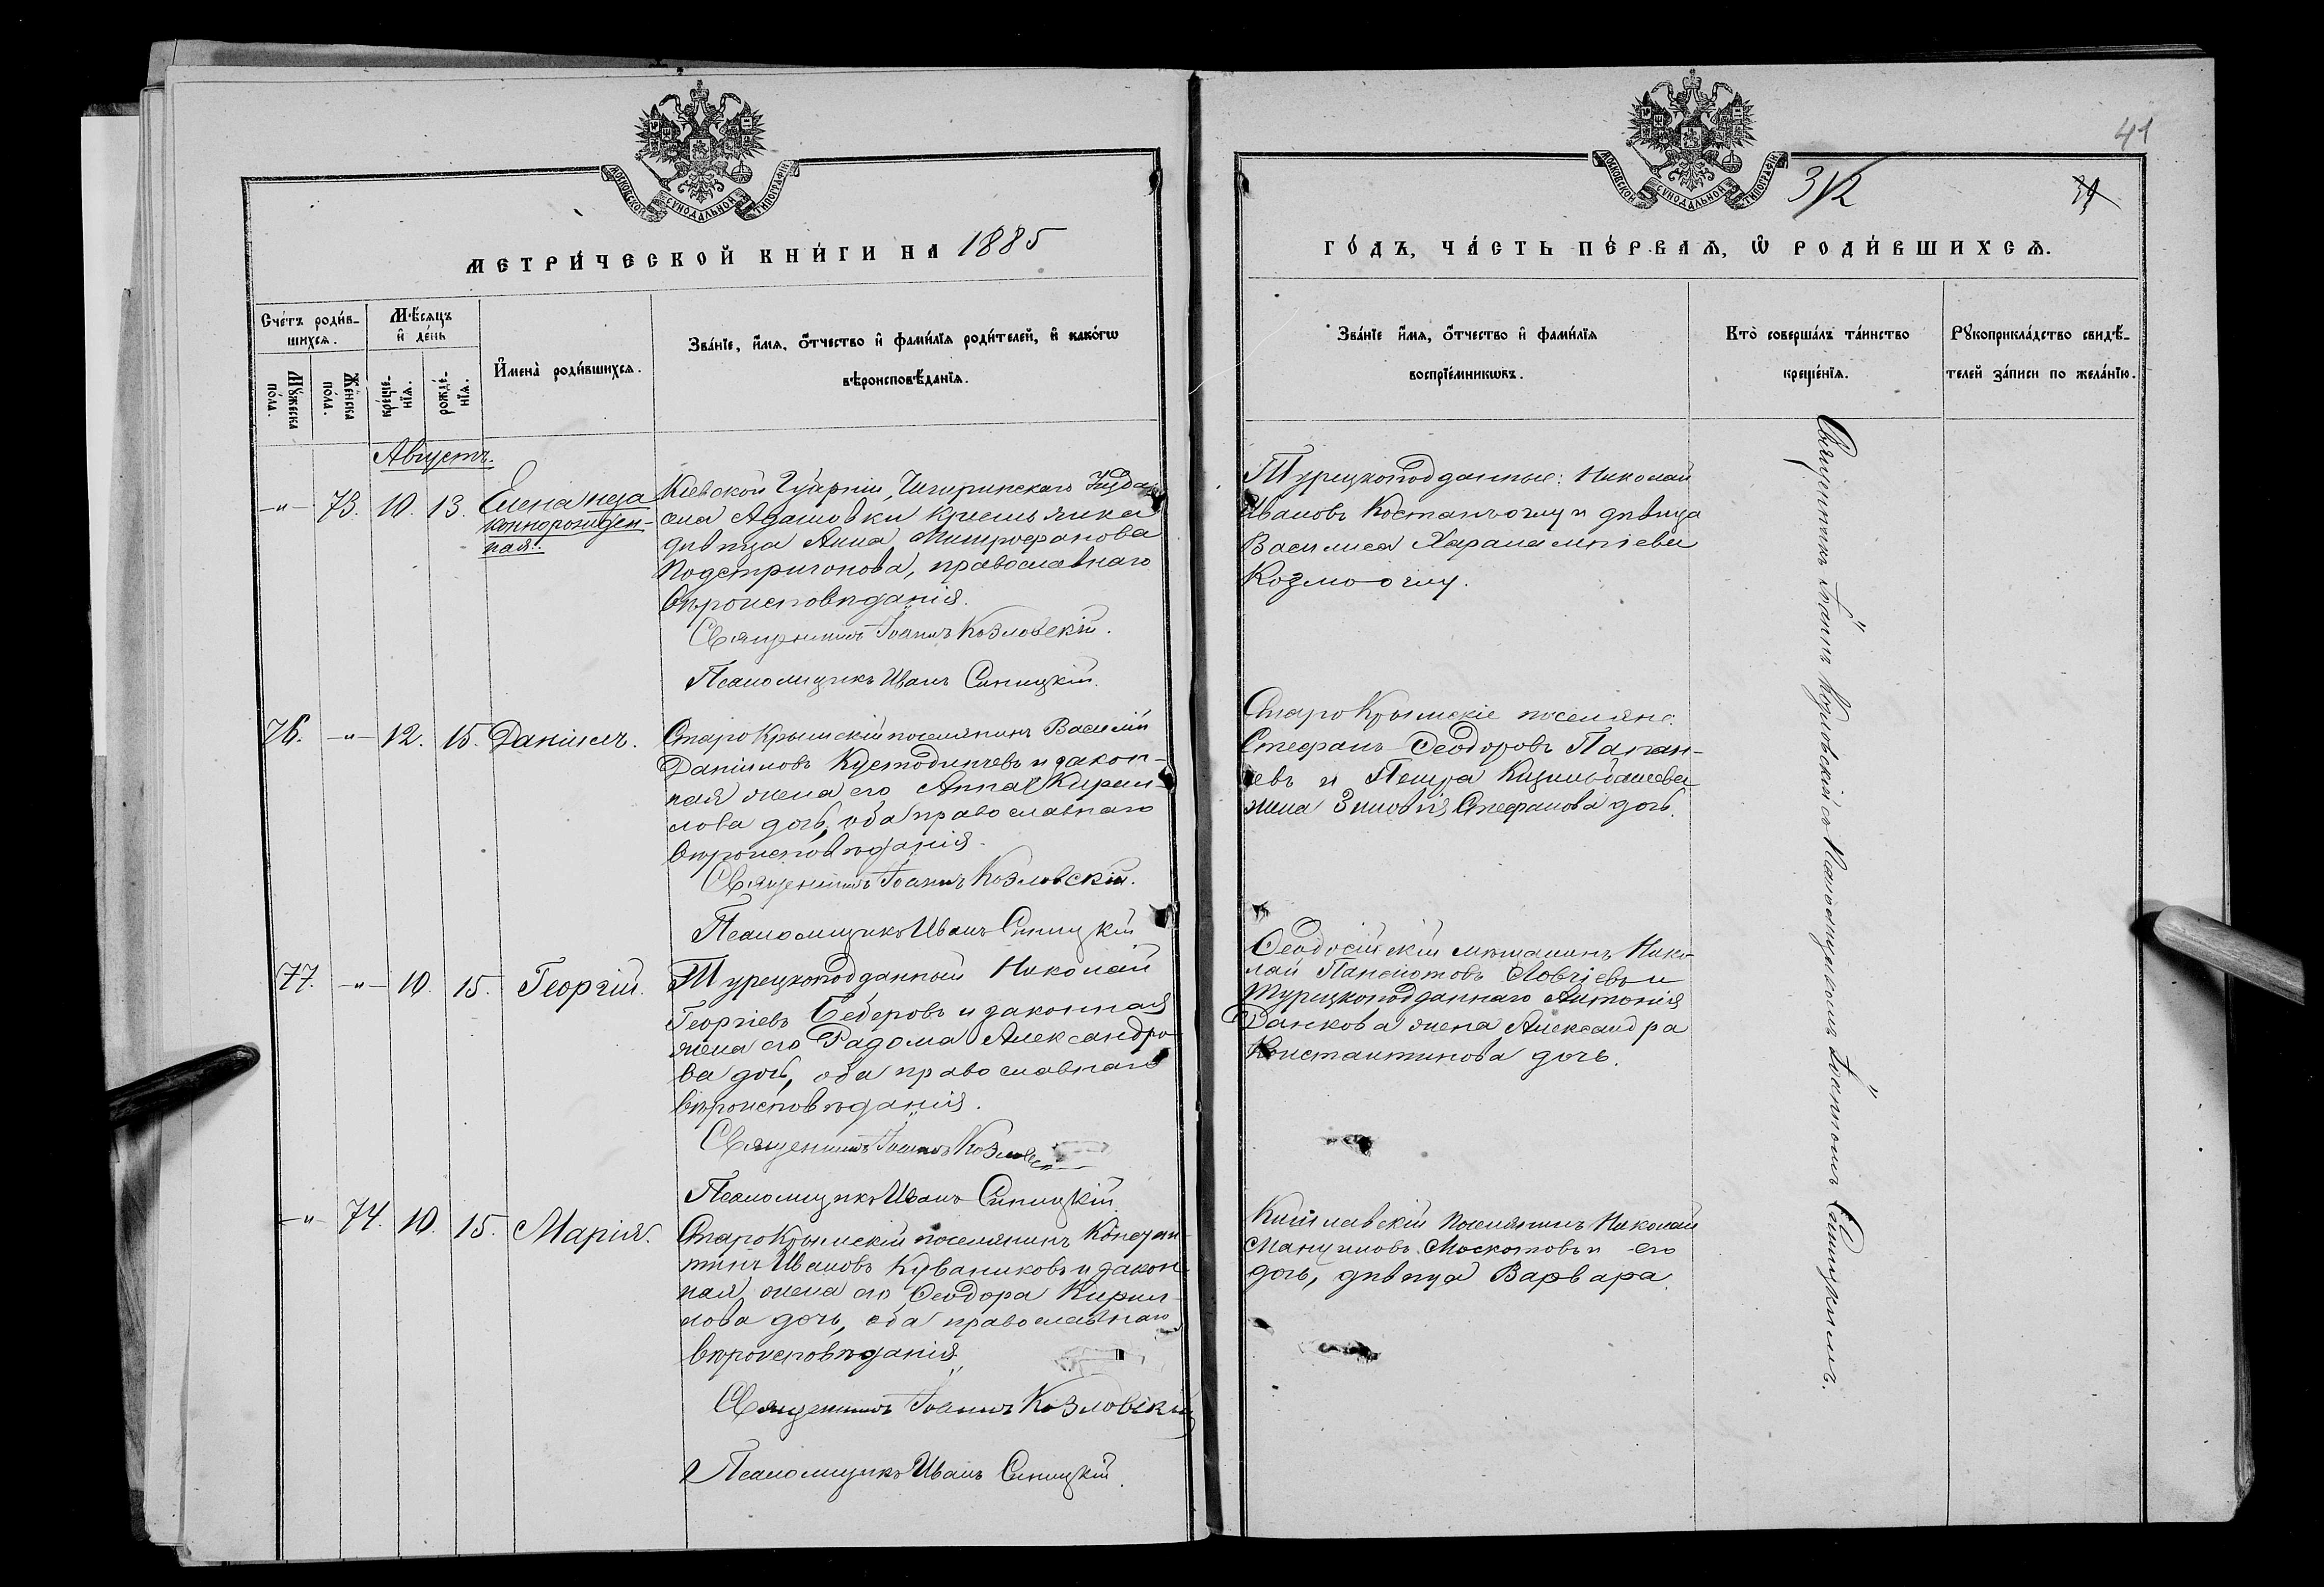 МОСКОВСКОЙ СѴНОДАЛЬНОЙ ТИПОГРАФІИ
МЕТРИ́ЧЕСКОЙ КНИ́ГИ НА 1885
Сче́тъ роди́в-
шихсѧ.
Мꙋ́жеска
по́ла.
Же́нска
по́ла.
Мѣ́сѧцъ
и҆ де́нь
креще́-
нїѧ.
рожде́-
нїѧ.
И҆мена̀ роди́вшихсѧ.
Зва́нїе, и҆́мѧ, ѻ҆́тчество и҆ фами́лїѧ роди́телей, и҆ како́гѡ
вѣроисповѣ́данїѧ.
Августъ.
-"- 73. 10. 13. Елена неза
коннорожден-
ная.
Кіевской Губерніи, Чигиринскаго Уѣзда
села Адамовки крестьянка
дѣвица Анна Митрофанова
Подстригонова, православнаго
вѣроисповѣданія.
Священникъ Іоаннъ Козловскій.
Псаломщикъ Иванъ Синицкій.
76. -"- 12. 15. Даніилъ.
Старо Крымскій поселянинъ Василій
Даніиловъ Кустодинчевъ и закон-
ная жена его Анна Кирил-
лова дочь, оба православнаго
вѣроисповѣданія.
Священникъ Іоаннъ Козловскій.
Псаломщикъ Иванъ Синицкій
77. -"- 10. 15. Георгій.
Турецкоподданный Николай
Георгіевъ Беберовъ и законная
жена его Радома Александро
ва дочь, оба православнаго
вѣроисповѣданія.
Священникъ Іоаннъ Козловск
Псаломщикъ Иванъ Синицкій.
-"- 74. 10. 15. Марія.
Старо Крымскій поселянинъ Констан
тинъ Ивановъ Куваниковъ и закон
ная жена его Ѳеодора Кирил-
лова дочь, оба православнаго
вѣроисповѣданія.
Священникъ Іоаннъ Козловскій
Псаломщикъ Иванъ Синицкій.
41
МОСКОВСКОЙ СѴНОДАЛЬНОЙ ТИПОГРАФІИ
312
ГО́ДЪ, ЧА́СТЬ ПЕ́РВАѦ, Ѡ҆ РОДИ́ВШИХСѦ.
Зва́нїе и҆́мѧ, ѻ҆́тчество и҆ фами́лїѧ
воспрїе́мникѡвъ.
Кто̀ соверша́лъ та́инство
креще́нїѧ.
Рꙋкоприкла́дство свидѣ́-
телей за́писи по жела́нїю.
Турецкоподданные: Николай
Ивановъ Костанъ-оглу и дѣвица
Василиса Харалампіева
Козмо-оглу.
Старо Крымскіе поселяне:
Стефанъ Ѳеодоровъ Папан-
чевъ и Петра Кизильбашева
жена Зиновія Стефанова дочь.
Ѳеодосійскій мѣщанинъ Нико-
лай Панаіотовъ Ловчіевъ и
Турецкоподданнаго Антонія
Данкова жена Александра
Константинова дочь.
Кишлавскій поселянинъ Николай
Мануиловъ Москотовъ и его
дочь, дѣвица Варвара.
Священникъ Іоаннъ Козловскій съ Псаломщикомъ Іоанномъ Синицкимъ.